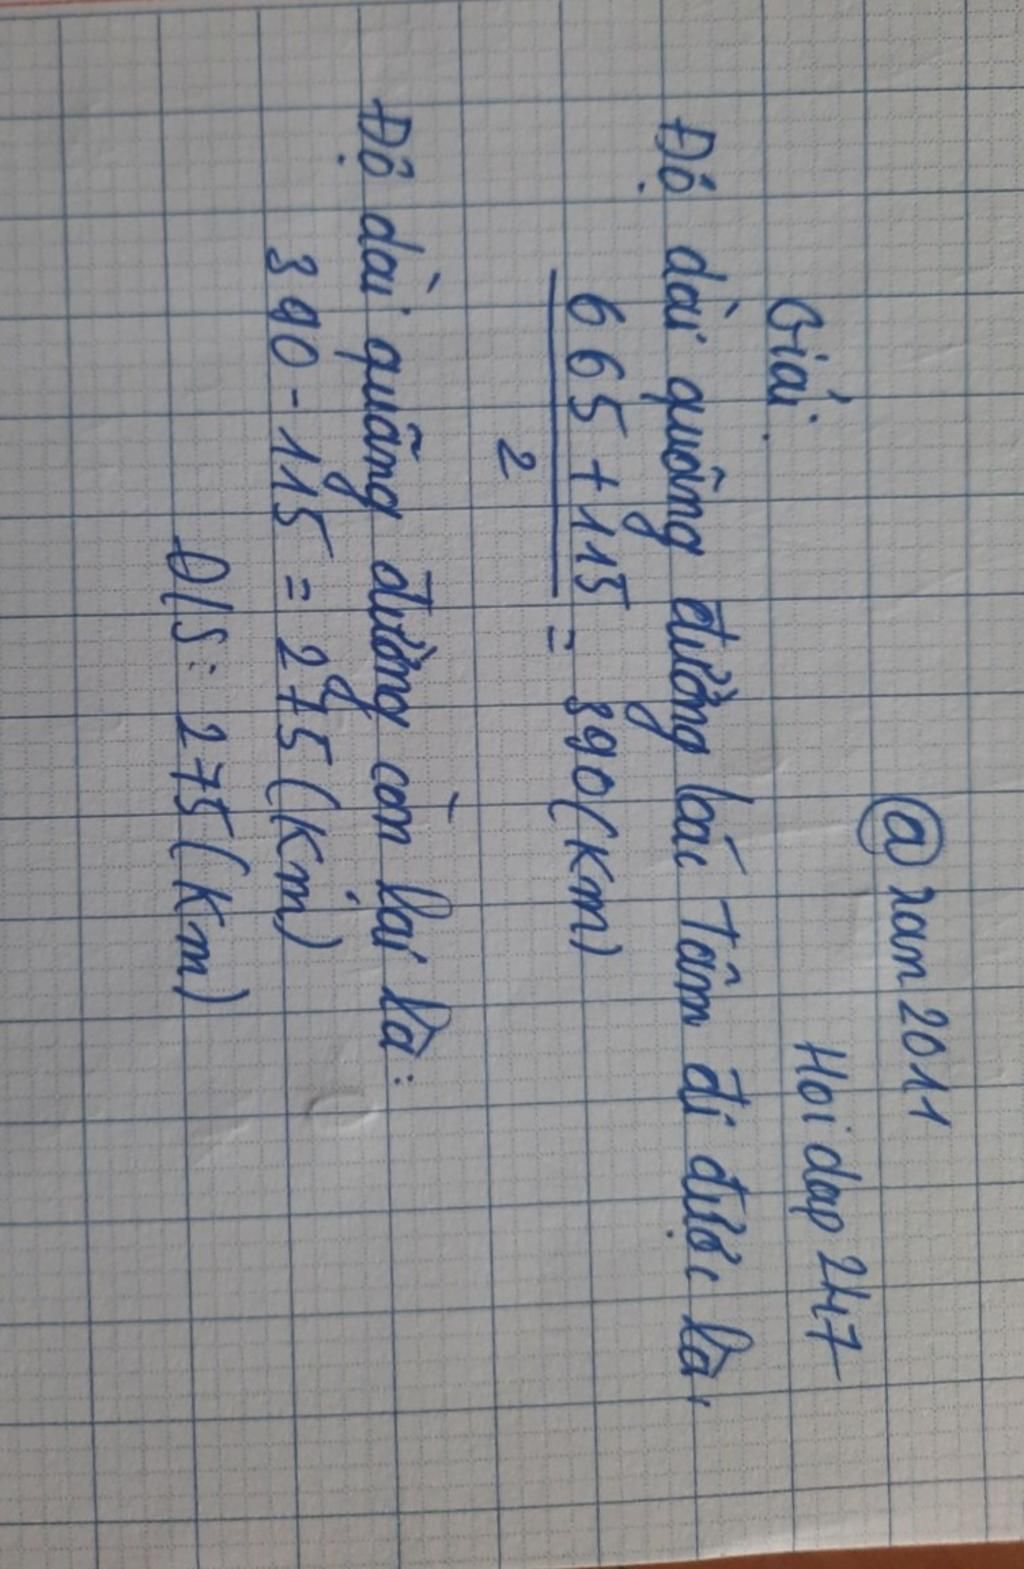 @ xam 2011
Hoi dap 247
Giải
Độ dài quãng đường bác Tâm đi được là,
665 + 115
2
= 390 (km)
Độ dài quãng đường còn lại là:
390 - 115 = 275 (km)
Đ/S: 275 (km)